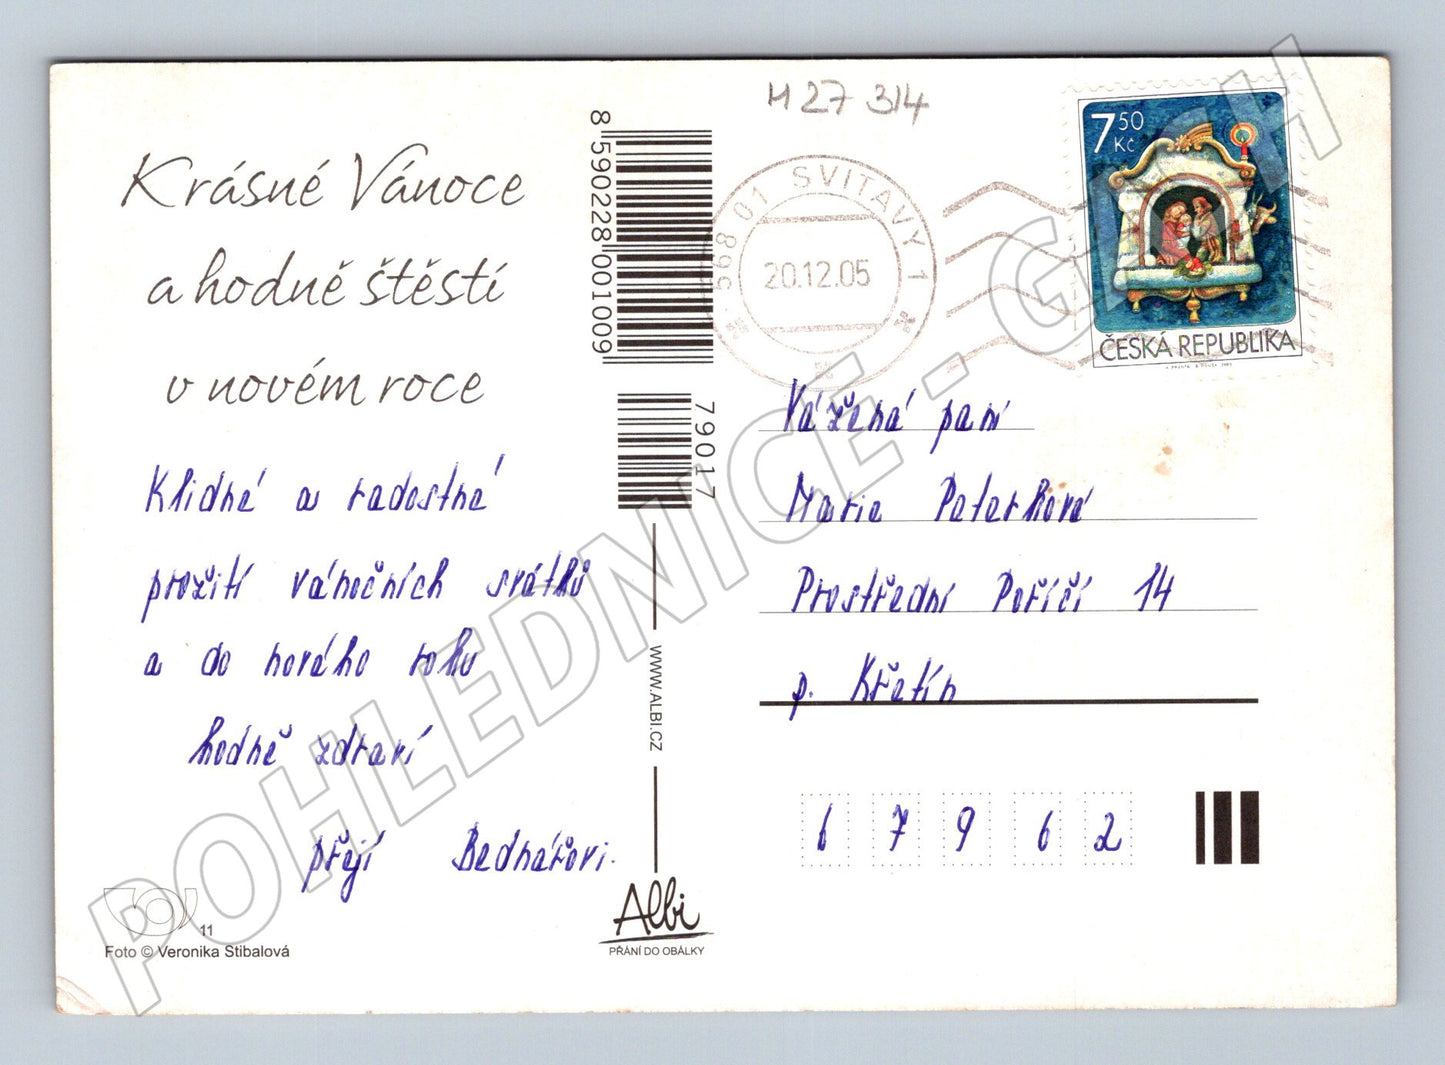 Krásné Vánoce
a hodně štěstí
v novém roce
Klidné a radostné
prožití vánočních svátků
a do nového roku
hodně zdraví
přejí Bednářovi.
11
Foto © Veronika Stibalová
8 590228 001009
79017
WWW.ALBI.CZ
Albi
PŘÁNÍ DO OBÁLKY
H 27 314
568 01 SVITAVY 1
20.12.05
7 50
Kč
ČESKÁ REPUBLIKA
Vážená paní
Marie Peterková
Prostřední Poříčí 14
p. Křetín
6 7 9 6 2
POHLEDNICE - GASH